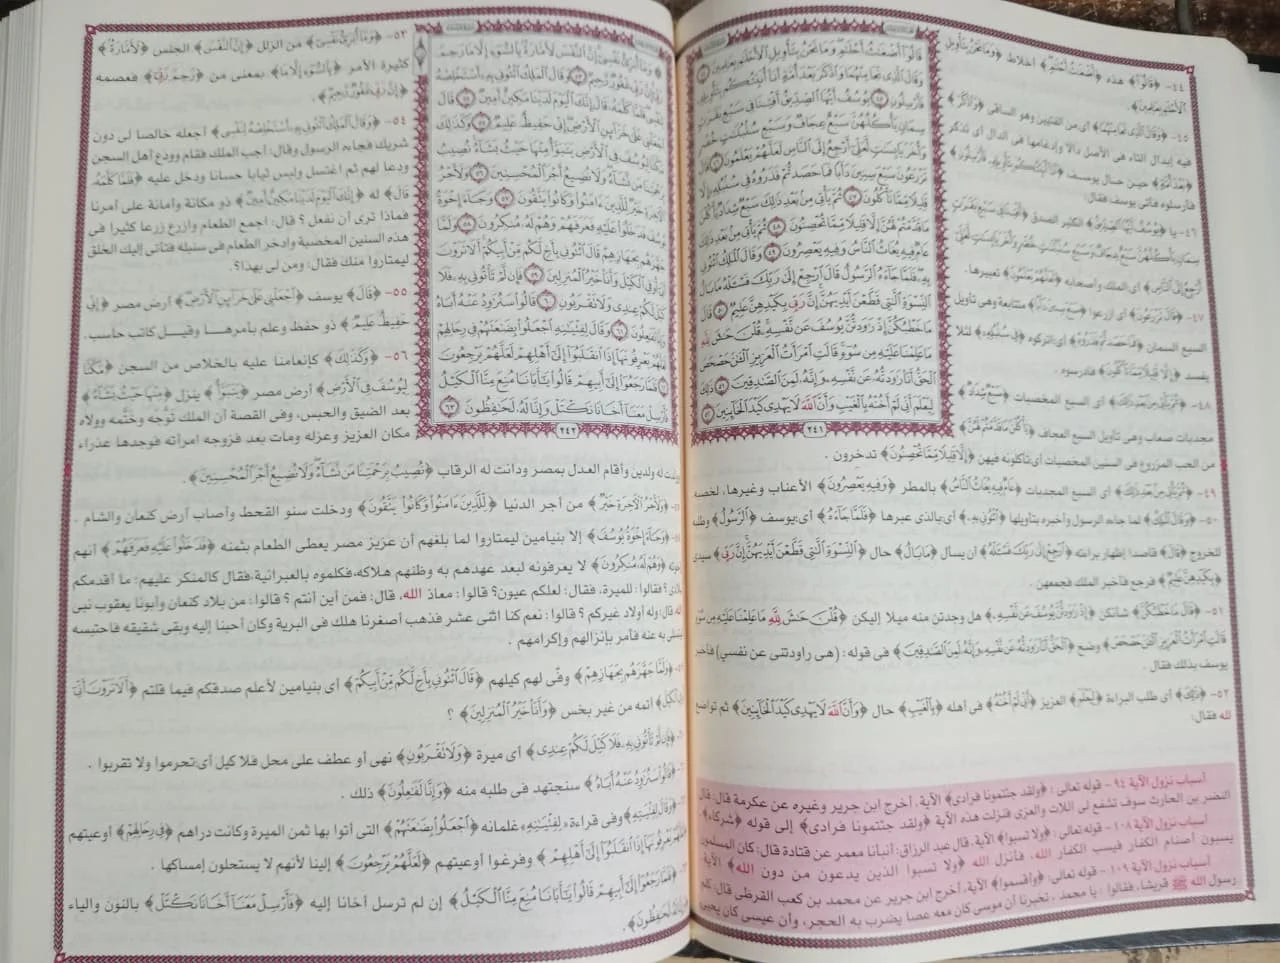 قَالُوٓا۟ أَضْغَٰثُ أَحْلَٰمٍ وَمَا نَحْنُ بِتَأْوِيلِ ٱلْأَحْلَٰمِ بِعَٰلِمِينَ ٤٤
وَقَالَ ٱلَّذِى نَجَا مِنْهُمَا وَٱدَّكَرَ بَعْدَ أُمَّةٍ أَنَا۠ أُنَبِّئُكُم بِتَأْوِيلِهِۦ
فَأَرْسِلُونِ ٤٥ يُوسُفُ أَيُّهَا ٱلصِّدِّيقُ أَفْتِنَا فِى سَبْعِ بَقَرَٰتٍ
سِمَانٍ يَأْكُلُهُنَّ سَبْعٌ عِجَافٌ وَسَبْعِ سُنۢبُلَٰتٍ خُضْرٍ
وَأُخَرَ يَابِسَٰتٍ لَّعَلِّىٓ أَرْجِعُ إِلَى ٱلنَّاسِ لَعَلَّهُمْ يَعْلَمُونَ ٤٦ قَالَ
تَزْرَعُونَ سَبْعَ سِنِينَ دَأَبًا فَمَا حَصَدتُّمْ فَذَرُوهُ فِى سُنۢبُلِهِۦٓ إِلَّا
قَلِيلًا مِّمَّا تَأْكُلُونَ ٤٧ ثُمَّ يَأْتِى مِنۢ بَعْدِ ذَٰلِكَ سَبْعٌ شِدَادٌ يَأْكُلْنَ
مَا قَدَّمْتُمْ لَهُنَّ إِلَّا قَلِيلًا مِّمَّا تُحْصِنُونَ ٤٨ ثُمَّ يَأْتِى مِنۢ بَعْدِ ذَٰلِكَ
عَامٌ فِيهِ يُغَاثُ ٱلنَّاسُ وَفِيهِ يَعْصِرُونَ ٤٩ وَقَالَ ٱلْمَلِكُ ٱئْتُونِى
بِهِۦ فَلَمَّا جَآءَهُ ٱلرَّسُولُ قَالَ ٱرْجِعْ إِلَىٰ رَبِّكَ فَسْـَٔلْهُ مَا بَالُ
ٱلنِّسْوَةِ ٱلَّٰتِى قَطَّعْنَ أَيْدِيَهُنَّ إِنَّ رَبِّى بِكَيْدِهِنَّ عَلِيمٌ ٥٠ قَالَ
مَا خَطْبُكُنَّ إِذْ رَٰوَدتُّنَّ يُوسُفَ عَن نَّفْسِهِۦ قُلْنَ حَٰشَ لِلَّهِ
مَا عَلِمْنَا عَلَيْهِ مِن سُوٓءٍ قَالَتِ ٱمْرَأَتُ ٱلْعَزِيزِ ٱلْـَٰٔنَ حَصْحَصَ
ٱلْحَقُّ أَنَا۠ رَٰوَدتُّهُۥ عَن نَّفْسِهِۦ وَإِنَّهُۥ لَمِنَ ٱلصَّٰدِقِينَ ٥١ ذَٰلِكَ
لِيَعْلَمَ أَنِّى لَمْ أَخُنْهُ بِٱلْغَيْبِ وَأَنَّ ٱللَّهَ لَا يَهْدِى كَيْدَ ٱلْخَآئِنِينَ ٥٢
٢٤١
٤٤- ﴿قَالُوٓا۟﴾ هذه ﴿أَضْغَٰثُ أَحْلَٰمٍ﴾ أخلاط ﴿وَمَا نَحْنُ بِتَأْوِيلِ
ٱلْأَحْلَٰمِ بِعَٰلِمِينَ﴾.
٤٥- ﴿وَقَالَ ٱلَّذِى نَجَا مِنْهُمَا﴾ أى من الفتيين وهو الساقى ﴿وَٱدَّكَرَ﴾
فيه إبدال التاء فى الأصل دالا وإدغامها فى الدال أى تذكر
﴿بَعْدَ أُمَّةٍ﴾ حين حال يوسف ﴿أَنَا۠ أُنَبِّئُكُم بِتَأْوِيلِهِۦ فَأَرْسِلُونِ﴾
فأرسلوه فأتى يوسف فقال:
٤٦- يا ﴿يُوسُفُ أَيُّهَا ٱلصِّدِّيقُ﴾ الكثير الصدق ﴿أَفْتِنَا فِى سَبْعِ بَقَرَٰتٍ
سِمَانٍ يَأْكُلُهُنَّ سَبْعٌ عِجَافٌ وَسَبْعِ سُنۢبُلَٰتٍ خُضْرٍ وَأُخَرَ يَابِسَٰتٍ لَّعَلِّىٓ
أَرْجِعُ إِلَى ٱلنَّاسِ﴾ أى الملك وأصحابه ﴿لَعَلَّهُمْ يَعْلَمُونَ﴾ تعبيرها.
٤٧- ﴿قَالَ تَزْرَعُونَ﴾ أى ازرعوا ﴿سَبْعَ سِنِينَ دَأَبًا﴾ متتابعة وهى تأويل
السبع السمان ﴿فَمَا حَصَدتُّمْ فَذَرُوهُ﴾ أى اتركوه ﴿فِى سُنۢبُلِهِۦٓ﴾ لئلا
يفسد ﴿إِلَّا قَلِيلًا مِّمَّا تَأْكُلُونَ﴾ فادرسوه.
٤٨- ﴿ثُمَّ يَأْتِى مِنۢ بَعْدِ ذَٰلِكَ﴾ أى السبع المخصبات ﴿سَبْعٌ شِدَادٌ﴾
مجدبات صعاب وهى تأويل السبع العجاف ﴿يَأْكُلْنَ مَا قَدَّمْتُمْ لَهُنَّ﴾
من الحب المزروع فى السنين المخصبات أى تأكلونه فيهن ﴿إِلَّا قَلِيلًا مِّمَّا تُحْصِنُونَ﴾ تدخرون .
٤٩- ﴿ثُمَّ يَأْتِى مِنۢ بَعْدِ ذَٰلِكَ﴾ أى السبع المجدبات ﴿عَامٌ فِيهِ يُغَاثُ ٱلنَّاسُ﴾ بالمطر ﴿وَفِيهِ يَعْصِرُونَ﴾ الأعناب وغيرها، لخصبه
٥٠- ﴿وَقَالَ ٱلْمَلِكُ﴾ لما جاءه الرسول وأخبره بتأويلها ﴿ٱئْتُونِى بِهِۦ﴾ أى بالذى عبرها ﴿فَلَمَّا جَآءَهُ﴾ أى يوسف ﴿ٱلرَّسُولُ﴾ وطلبه
للخروج ﴿قَالَ﴾ قاصدا إظهار براءته ﴿ٱرْجِعْ إِلَىٰ رَبِّكَ فَسْـَٔلْهُ﴾ أن يسأل ﴿مَا بَالُ﴾ حال ﴿ٱلنِّسْوَةِ ٱلَّٰتِى قَطَّعْنَ أَيْدِيَهُنَّ إِنَّ رَبِّى﴾ سيدى
﴿بِكَيْدِهِنَّ عَلِيمٌ﴾ فرجع فأخبر الملك فجمعهن .
٥١- ﴿قَالَ مَا خَطْبُكُنَّ﴾ شأنكن ﴿إِذْ رَٰوَدتُّنَّ يُوسُفَ عَن نَّفْسِهِۦ﴾ هل وجدتن منه ميلا إليكن ﴿قُلْنَ حَٰشَ لِلَّهِ مَا عَلِمْنَا عَلَيْهِ مِن سُوٓءٍ
قَالَتِ ٱمْرَأَتُ ٱلْعَزِيزِ ٱلْـَٰٔنَ حَصْحَصَ﴾ وضح ﴿ٱلْحَقُّ أَنَا۠ رَٰوَدتُّهُۥ عَن نَّفْسِهِۦ وَإِنَّهُۥ لَمِنَ ٱلصَّٰدِقِينَ﴾ فى قوله : (هى راودتنى عن نفسى) فأخبر
يوسف بذلك فقال .
٥٢- ﴿ذَٰلِكَ﴾ أى طلب البراءة ﴿لِيَعْلَمَ﴾ العزيز ﴿أَنِّى لَمْ أَخُنْهُ﴾ فى أهله ﴿بِٱلْغَيْبِ﴾ حال ﴿وَأَنَّ ٱللَّهَ لَا يَهْدِى كَيْدَ ٱلْخَآئِنِينَ﴾ ثم تواضع
لله فقال:
أسباب نزول الآية ٩٤ - قوله تعالى : ﴿ولقد جئتمونا فرادى﴾ الآية. أخرج ابن جرير وغيره عن عكرمة قال: قال
النضر بن الحارث سوف تشفع لى اللات والعزى فنزلت هذه الآية ﴿ولقد جئتمونا فرادى﴾ إلى قوله ﴿شركاء﴾.
أسباب نزول الآية ١٠٨ - قوله تعالى: ﴿ولا تسبوا﴾ الآية. قال عبد الرزاق: أنبأنا معمر عن قتادة قال: كان المسلمون
يسبون أصنام الكفار فيسب الكفار الله، فأنزل الله ﴿ولا تسبوا الذين يدعون من دون الله﴾ الآية.
أسباب نزول الآية ١٠٩ - قوله تعالى: ﴿وأقسموا﴾ الآية، أخرج ابن جرير عن محمد بن كعب القرظى قال: كلم
رسول الله ﷺ قريشا، فقالوا : يا محمد ، تخبرنا أن موسى كان معه عصا يضرب به الحجر، وأن عيسى كان يحيى
وَمَآ أُبَرِّئُ نَفْسِىٓ إِنَّ ٱلنَّفْسَ لَأَمَّارَةٌۢ بِٱلسُّوٓءِ إِلَّا مَا رَحِمَ
رَبِّىٓ إِنَّ رَبِّى غَفُورٌ رَّحِيمٌ ٥٣ وَقَالَ ٱلْمَلِكُ ٱئْتُونِى بِهِۦٓ أَسْتَخْلِصْهُ
لِنَفْسِى فَلَمَّا كَلَّمَهُۥ قَالَ إِنَّكَ ٱلْيَوْمَ لَدَيْنَا مَكِينٌ أَمِينٌ ٥٤ قَالَ
ٱجْعَلْنِى عَلَىٰ خَزَآئِنِ ٱلْأَرْضِ إِنِّى حَفِيظٌ عَلِيمٌ ٥٥ وَكَذَٰلِكَ
مَكَّنَّا لِيُوسُفَ فِى ٱلْأَرْضِ يَتَبَوَّأُ مِنْهَا حَيْثُ يَشَآءُ نُصِيبُ
بِرَحْمَتِنَا مَن نَّشَآءُ وَلَا نُضِيعُ أَجْرَ ٱلْمُحْسِنِينَ ٥٦ وَلَأَجْرُ
ٱلْءَاخِرَةِ خَيْرٌ لِّلَّذِينَ ءَامَنُوا۟ وَكَانُوا۟ يَتَّقُونَ ٥٧ وَجَآءَ إِخْوَةُ
يُوسُفَ فَدَخَلُوا۟ عَلَيْهِ فَعَرَفَهُمْ وَهُمْ لَهُۥ مُنكِرُونَ ٥٨ وَلَمَّا
جَهَّزَهُم بِجَهَازِهِمْ قَالَ ٱئْتُونِى بِأَخٍ لَّكُم مِّنْ أَبِيكُمْ أَلَا تَرَوْنَ
أَنِّىٓ أُوفِى ٱلْكَيْلَ وَأَنَا۠ خَيْرُ ٱلْمُنزِلِينَ ٥٩ فَإِن لَّمْ تَأْتُونِى بِهِۦ فَلَا
كَيْلَ لَكُمْ عِندِى وَلَا تَقْرَبُونِ ٦٠ قَالُوا۟ سَنُرَٰوِدُ عَنْهُ أَبَاهُ
وَإِنَّا لَفَٰعِلُونَ ٦١ وَقَالَ لِفِتْيَٰنِهِ ٱجْعَلُوا۟ بِضَٰعَتَهُمْ فِى رِحَالِهِمْ
لَعَلَّهُمْ يَعْرِفُونَهَآ إِذَا ٱنقَلَبُوٓا۟ إِلَىٰٓ أَهْلِهِمْ لَعَلَّهُمْ يَرْجِعُونَ
٦٢ فَلَمَّا رَجَعُوٓا۟ إِلَىٰٓ أَبِيهِمْ قَالُوا۟ يَٰٓأَبَانَا مُنِعَ مِنَّا ٱلْكَيْلُ
فَأَرْسِلْ مَعَنَآ أَخَانَا نَكْتَلْ وَإِنَّا لَهُۥ لَحَٰفِظُونَ ٦٣
٢٤٢
٥٣- ﴿وَمَآ أُبَرِّئُ نَفْسِىٓ﴾ من الزلل ﴿إِنَّ ٱلنَّفْسَ﴾ الجنس ﴿لَأَمَّارَةٌۢ﴾
كثيرة الأمر ﴿بِٱلسُّوٓءِ إِلَّا مَا﴾ بمعنى من ﴿رَحِمَ رَبِّىٓ﴾ فعصمه
﴿إِنَّ رَبِّى غَفُورٌ رَّحِيمٌ﴾.
٥٤- ﴿وَقَالَ ٱلْمَلِكُ ٱئْتُونِى بِهِۦٓ أَسْتَخْلِصْهُ لِنَفْسِى﴾ أجعله خالصا لى دون
شريك فجاءه الرسول وقال: أجب الملك فقام وودع أهل السجن
ودعا لهم ثم اغتسل ولبس ثيابا حسانا ودخل عليه ﴿فَلَمَّا كَلَّمَهُۥ
قَالَ﴾ له ﴿إِنَّكَ ٱلْيَوْمَ لَدَيْنَا مَكِينٌ أَمِينٌ﴾ ذو مكانة وأمانة على أمرنا
فماذا ترى أن نفعل ؟ قال: اجمع الطعام وازرع زرعا كثيرا فى
هذه السنين المخصبة وادخر الطعام فى سنبله فتأتى إليك الخلق
ليمتاروا منك فقال: ومن لى بهذا؟.
٥٥- ﴿قَالَ﴾ يوسف ﴿ٱجْعَلْنِى عَلَىٰ خَزَآئِنِ ٱلْأَرْضِ﴾ أرض مصر ﴿إِنِّى
حَفِيظٌ عَلِيمٌ﴾ ذو حفظ وعلم بأمرها وقيل كاتب حاسب .
٥٦- ﴿وَكَذَٰلِكَ﴾ كإنعامنا عليه بالخلاص من السجن ﴿مَكَّنَّا
لِيُوسُفَ فِى ٱلْأَرْضِ﴾ أرض مصر ﴿يَتَبَوَّأُ﴾ ينزل ﴿مِنْهَا حَيْثُ يَشَآءُ﴾
بعد الضيق والحبس، وفى القصة أن الملك توّجه وختّمه وولاه
مكان العزيز وعزله ومات بعد فزوجه امرأته فوجدها عذراء
وولدت له ولدين وأقام العدل بمصر ودانت له الرقاب ﴿نُصِيبُ بِرَحْمَتِنَا مَن نَّشَآءُ وَلَا نُضِيعُ أَجْرَ ٱلْمُحْسِنِينَ﴾.
﴿وَلَأَجْرُ ٱلْءَاخِرَةِ خَيْرٌ﴾ من أجر الدنيا ﴿لِّلَّذِينَ ءَامَنُوا۟ وَكَانُوا۟ يَتَّقُونَ﴾ ودخلت سنو القحط وأصاب أرض كنعان والشام .
﴿وَجَآءَ إِخْوَةُ يُوسُفَ﴾ إلا بنيامين ليمتاروا لما بلغهم أن عزيز مصر يعطى الطعام بثمنه ﴿فَدَخَلُوا۟ عَلَيْهِ فَعَرَفَهُمْ﴾ أنهم
إخوته ﴿وَهُمْ لَهُۥ مُنكِرُونَ﴾ لا يعرفونه لبعد عهدهم به وظنهم هلاكه، فكلموه بالعبرانية، فقال كالمنكر عليهم: ما أقدمكم
بلادى؟ فقالوا: للميرة، فقال: لعلكم عيون؟ قالوا: معاذ الله، قال: فمن أين أنتم ؟ قالوا: من بلاد كنعان وأبونا يعقوب نبى
الله قال: وله أولاد غيركم ؟ قالوا: نعم كنا اثنى عشر فذهب أصغرنا هلك فى البرية وكان أحبنا إليه وبقى شقيقه فاحتبسه
ليتسلى به عنه فأمر بإنزالهم وإكرامهم .
﴿وَلَمَّا جَهَّزَهُم بِجَهَازِهِمْ﴾ وفّى لهم كيلهم ﴿قَالَ ٱئْتُونِى بِأَخٍ لَّكُم مِّنْ أَبِيكُمْ﴾ أى بنيامين لأعلم صدقكم فيما قلتم ﴿أَلَا تَرَوْنَ أَنِّىٓ
أُوفِى ٱلْكَيْلَ﴾ أتمه من غير بخس ﴿وَأَنَا۠ خَيْرُ ٱلْمُنزِلِينَ﴾ ؟
﴿فَإِن لَّمْ تَأْتُونِى بِهِۦ فَلَا كَيْلَ لَكُمْ عِندِى﴾ أى ميرة ﴿وَلَا تَقْرَبُونِ﴾ نهى أو عطف على محل فلا كيل أى تحرموا ولا تقربوا .
﴿قَالُوا۟ سَنُرَٰوِدُ عَنْهُ أَبَاهُ﴾ سنجتهد فى طلبه منه ﴿وَإِنَّا لَفَٰعِلُونَ﴾ ذلك .
﴿وَقَالَ لِفِتْيَتِهِ﴾ وفى قراءة ﴿لِفِتْيَٰنِهِ﴾ غلمانه ﴿ٱجْعَلُوا۟ بِضَٰعَتَهُمْ﴾ التى أتوا بها ثمن الميرة وكانت دراهم ﴿فِى رِحَالِهِمْ﴾ أوعيتهم
﴿لَعَلَّهُمْ يَعْرِفُونَهَآ إِذَا ٱنقَلَبُوٓا۟ إِلَىٰٓ أَهْلِهِمْ﴾ وفرغوا أوعيتهم ﴿لَعَلَّهُمْ يَرْجِعُونَ﴾ إلينا لأنهم لا يستحلون إمساكها .
﴿فَلَمَّا رَجَعُوٓا۟ إِلَىٰٓ أَبِيهِمْ قَالُوا۟ يَٰٓأَبَانَا مُنِعَ مِنَّا ٱلْكَيْلُ﴾ إن لم ترسل أخانا إليه ﴿فَأَرْسِلْ مَعَنَآ أَخَانَا نَكْتَلْ﴾ بالنون والياء
﴿وَإِنَّا لَهُۥ لَحَٰفِظُونَ﴾.